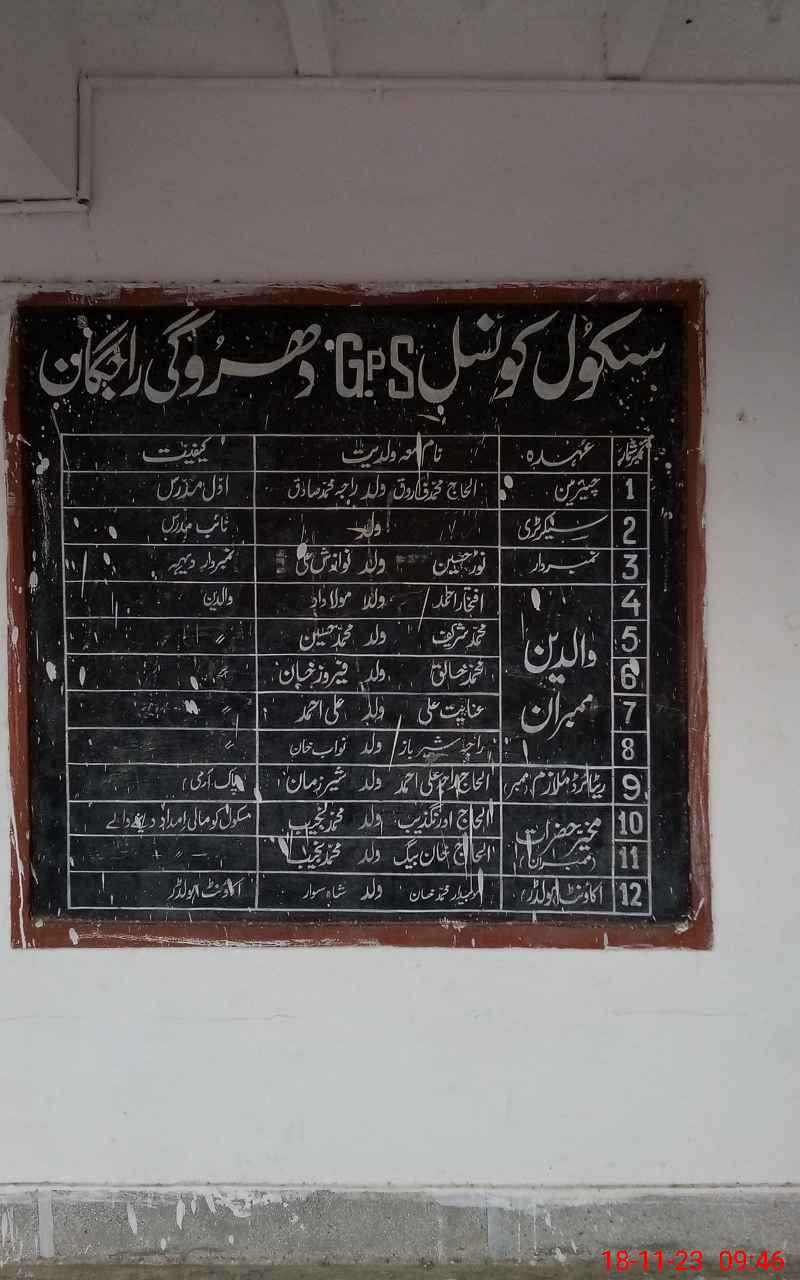 سکول کونسل GPS دھروگی راجگان
نمبرشمار عہدہ نام معہ ولدیت کیفیت
1 چیئرمین الحاج محمد فاروق ولد راجہ محمد صادق اول مدرس
2 سیکرٹری ولد نائب مدرس
3 نمبردار نور حسین ولد نوازش علی نمبردار دیہہ
4 افتخار احمد ولد مولا داد والدین
والدین ممبران
5 محمد شریف ولد محمد حسین 〃
6 محمد خالق ولد فیروز خان 〃
7 عنایت علی ولد علی احمد 〃
8 راجہ شیرباز ولد نواب خان 〃
9 ریٹائرڈ ملازم (ممبر) الحاج راجہ علی احمد ولد شیر زمان پاک آرمی
10 مخیر حضرات الحاج اورنگزیب ولد محمد نجیب سکول کو مالی امداد دینے والے
11 (ممبران) الحاج خان بیگ ولد محمد نجیب 〃
12 اکاونٹ ہولڈر محمد خان ولد شاہ سوار اکاونٹ ہولڈر
18-11-23 09:46